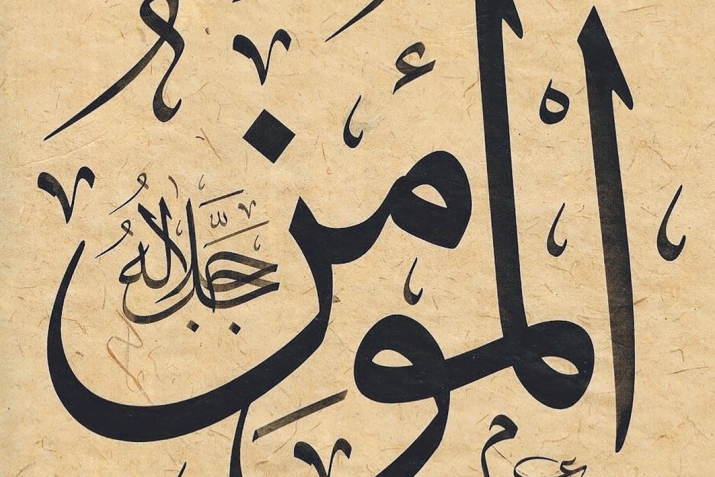 المؤمن
جل جلاله